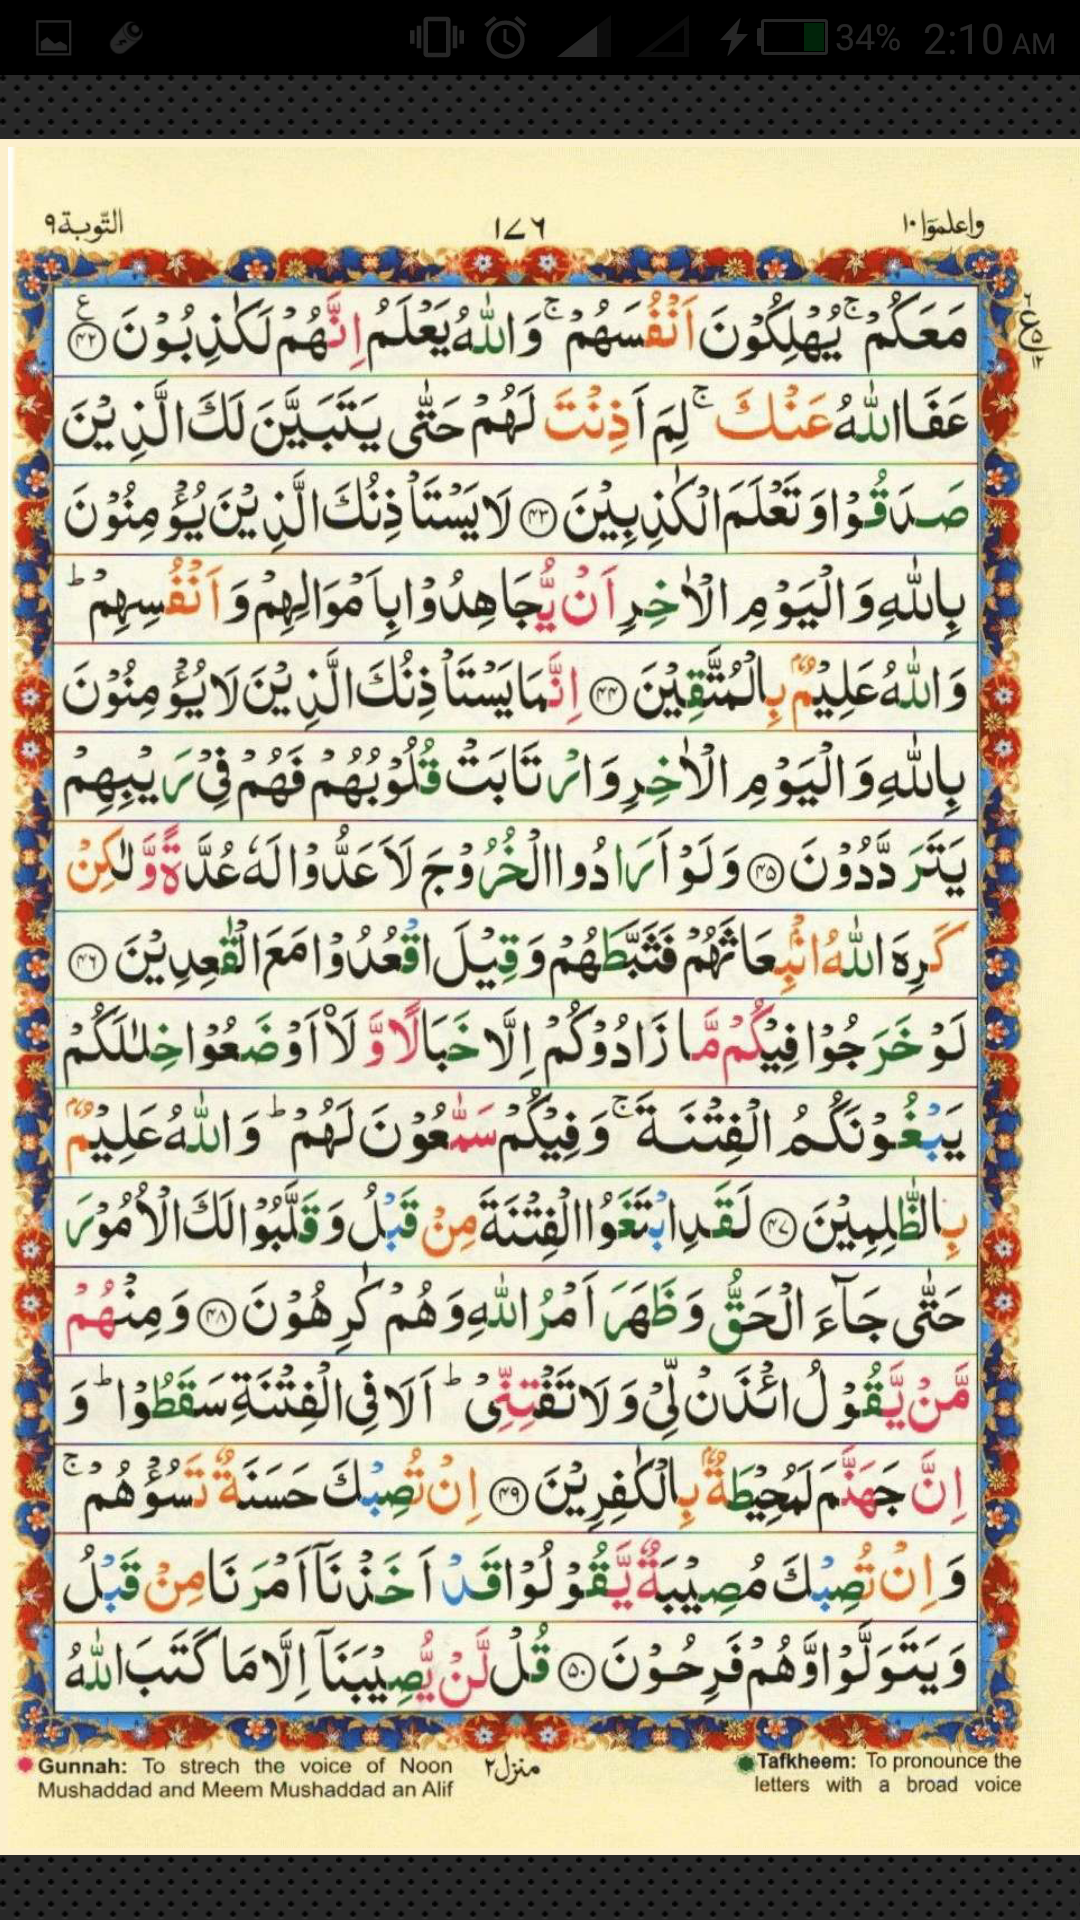 34% 2:10 AM
واعلموٓا۱۰ ۱۷۶ التّوبة۹
مَعَكُمْ ۚ يُهْلِكُوْنَ اَنْفُسَهُمْ ۚ وَاللّٰهُ يَعْلَمُ اِنَّهُمْ لَكٰذِبُوْنَ ﴿۴۲﴾ ع
عَفَا اللّٰهُ عَنْكَ ۚ لِمَ اَذِنْتَ لَهُمْ حَتّٰى يَتَبَيَّنَ لَكَ الَّذِيْنَ
صَدَقُوْا وَتَعْلَمَ الْكٰذِبِيْنَ ﴿۴۳﴾ لَا يَسْتَاْذِنُكَ الَّذِيْنَ يُؤْمِنُوْنَ
بِاللّٰهِ وَالْيَوْمِ الْاٰخِرِ اَنْ يُّجَاهِدُوْا بِاَمْوَالِهِمْ وَاَنْفُسِهِمْ ؕ
وَاللّٰهُ عَلِيْمٌۢ بِالْمُتَّقِيْنَ ﴿۴۴﴾ اِنَّمَا يَسْتَاْذِنُكَ الَّذِيْنَ لَا يُؤْمِنُوْنَ
بِاللّٰهِ وَالْيَوْمِ الْاٰخِرِ وَارْتَابَتْ قُلُوْبُهُمْ فَهُمْ فِيْ رَيْبِهِمْ
يَتَرَدَّدُوْنَ ﴿۴۵﴾ وَلَوْ اَرَادُوا الْخُرُوْجَ لَاَعَدُّوْا لَهٗ عُدَّةً وَّلٰكِنْ
كَرِهَ اللّٰهُ انْۢبِعَاثَهُمْ فَثَبَّطَهُمْ وَقِيْلَ اقْعُدُوْا مَعَ الْقٰعِدِيْنَ ﴿۴۶﴾
لَوْ خَرَجُوْا فِيْكُمْ مَّا زَادُوْكُمْ اِلَّا خَبَالًا وَّلَاْاَوْضَعُوْا خِلٰلَكُمْ
يَبْغُوْنَكُمُ الْفِتْنَةَ ۚ وَفِيْكُمْ سَمّٰعُوْنَ لَهُمْ ؕ وَاللّٰهُ عَلِيْمٌۢ
بِالظّٰلِمِيْنَ ﴿۴۷﴾ لَقَدِ ابْتَغَوُا الْفِتْنَةَ مِنْ قَبْلُ وَقَلَّبُوْا لَكَ الْاُمُوْرَ
حَتّٰى جَآءَ الْحَقُّ وَظَهَرَ اَمْرُ اللّٰهِ وَهُمْ كٰرِهُوْنَ ﴿۴۸﴾ وَمِنْهُمْ
مَّنْ يَّقُوْلُ ائْذَنْ لِّيْ وَلَا تَفْتِنِّيْ ؕ اَلَا فِي الْفِتْنَةِ سَقَطُوْا ؕ وَ
اِنَّ جَهَنَّمَ لَمُحِيْطَةٌۢ بِالْكٰفِرِيْنَ ﴿۴۹﴾ اِنْ تُصِبْكَ حَسَنَةٌ تَسُؤْهُمْ ۚ
وَاِنْ تُصِبْكَ مُصِيْبَةٌ يَّقُوْلُوْا قَدْ اَخَذْنَآ اَمْرَنَا مِنْ قَبْلُ
وَيَتَوَلَّوْا وَّهُمْ فَرِحُوْنَ ﴿۵۰﴾ قُلْ لَّنْ يُّصِيْبَنَآ اِلَّا مَا كَتَبَ اللّٰهُ
Gunnah: To strech the voice of Noon
Mushaddad and Meem Mushaddad an Alif
منزل۲
Tafkheem: To pronounce the
letters with a broad voice